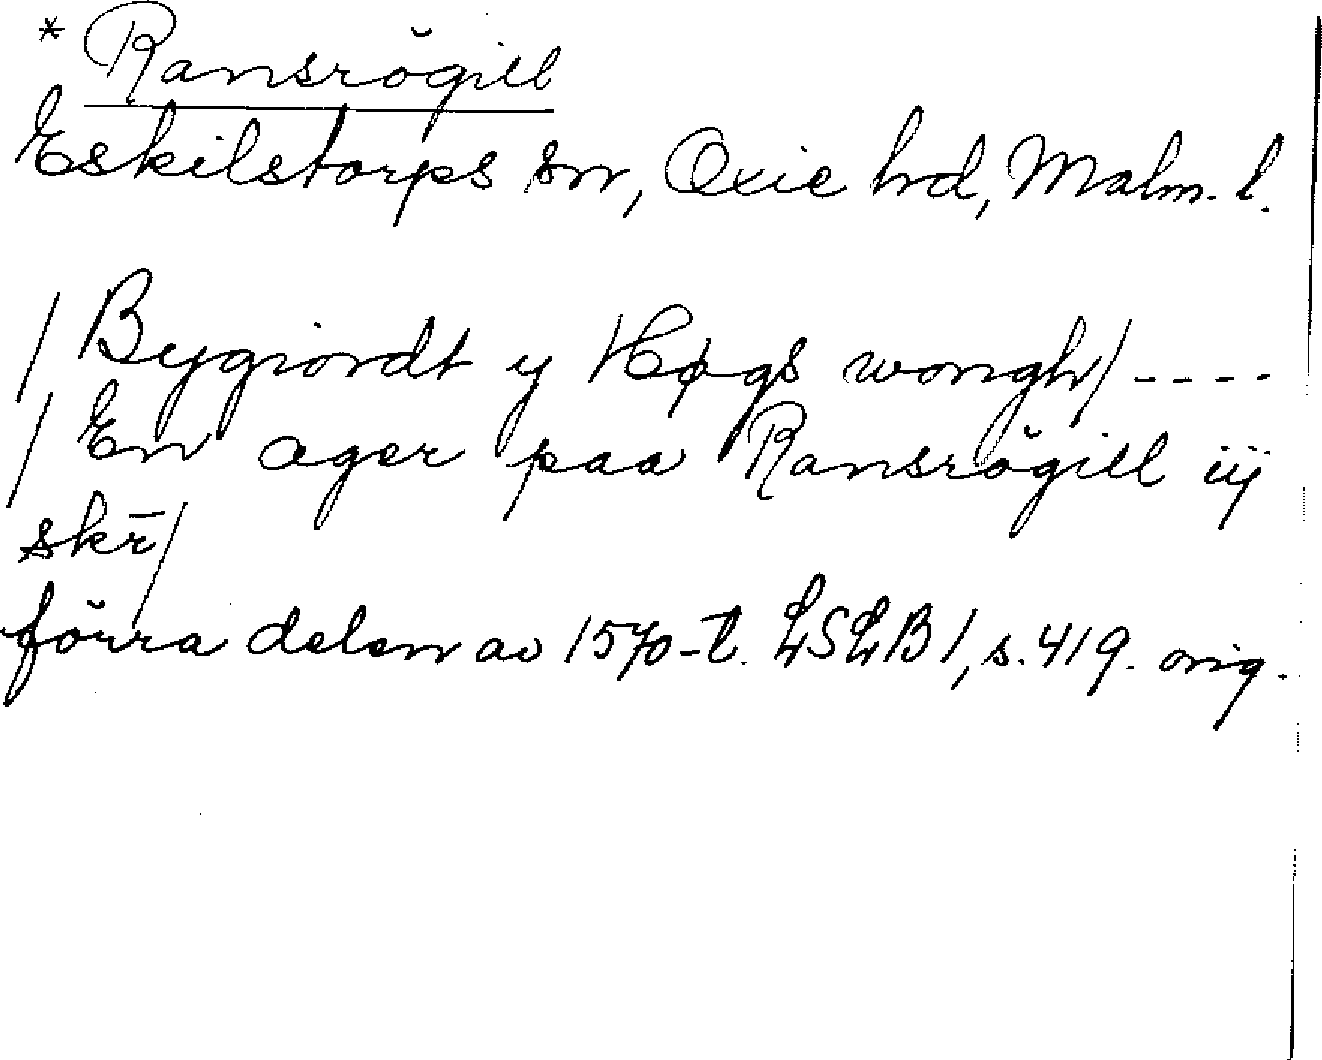 * Ransrögill
Eskilstorps sn, Oxie hrd, Malm. l.
/ Bygiordt y Høgs wongh / ----
/ En ager paa Ransrögill iij
skr̄ /
förra delen av 1570-t. LSLB 1, s. 419. orig.